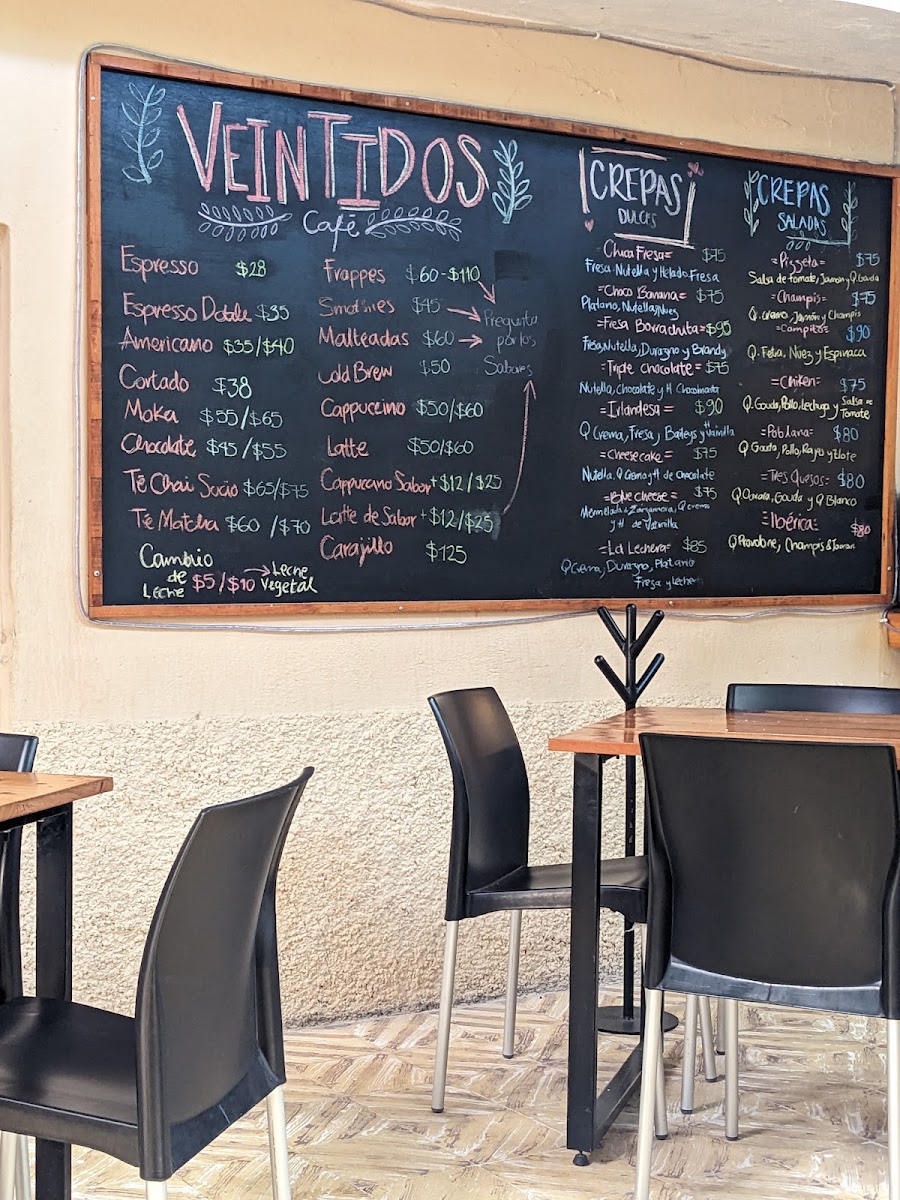 VEINTIDOS
Café
Espresso $28
Espresso Doble $35
Americano $35/$40
Cortado $38
Moka $55/$65
Chocolate $45/$55
Té Chai Sucio $65/$75
Té Matcha $60/$70
Cambio
de
Leche $5/$10 → Leche
Vegetal
Frappes $60-$110
Smothies $45
Malteadas $60
Cold Brew $50
Cappuccino $50/$60
Latte $50/$60
Cappuccino Sabor +$12/$25
Latte de Sabor +$12/$25
Carajillo $125
Pregunta
por los
Sabores
CREPAS
DULCES
Fresa $75
Fresa, Nutella y Helado Fresa
=Choco Banana= $75
Platano, Nutella, Nues
=Fresa Borrachita= $95
Fresa, Nutella, Durazno y Brandy
=Triple Chocolate= $75
Nutella, Chocolate y H Chocomenta
=Irlandesa= $90
Q Crema, Fresa, Baileys y H Vainilla
=Cheesecake= $75
Nutella, Q Crema y H de Chocolate
=Blue Cheese= $75
Mermelada de Zarzamora, Q crema
y H de Vainilla
=La Lechera= $85
Q Crema, Durazno, Platano
Fresa y Lechera
CREPAS
SALADAS
=Pizzeta= $75
Salsa de tomate, Jamón y Q. Gouda
=Champis= $75
Q. Crema, Jamón y Champis
=Campito= $90
Q. Feta, Nuez y Espinaca
=Chiken= $75
Q. Gouda, Pollo, Lechuga y Salsa de
Tomate
=Poblana= $80
Q Gouda, Pollo, Rajas y Elote
=Tres Quesos= $80
Q Oaxaca, Gouda y Q Blanco
=Ibérica= $80
Q Provolone, Champis &